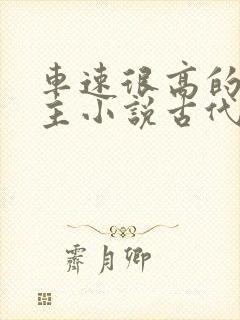 車速很高的
主小說古代
霽月卿